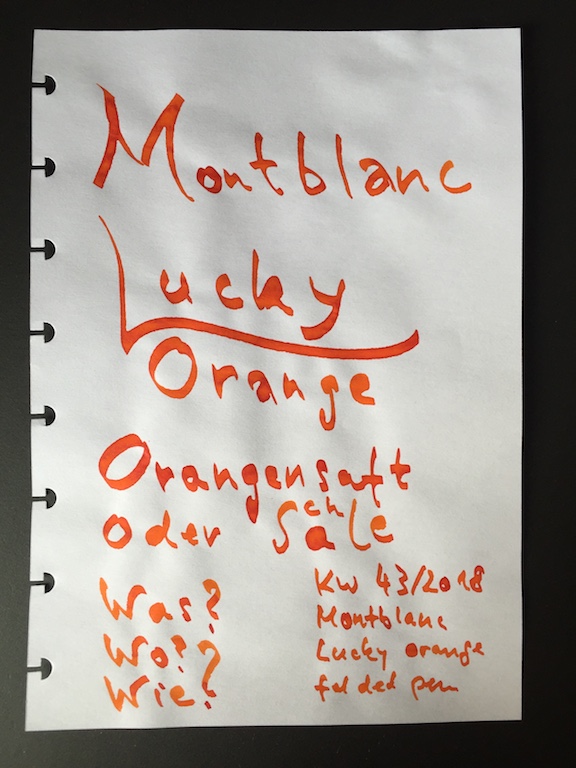 Montblanc
Lucky
Orange
Orangensaft
oder Schale
Was? KW 43/2018
Wo? Montblanc
Wie? Lucky orange
folded pen